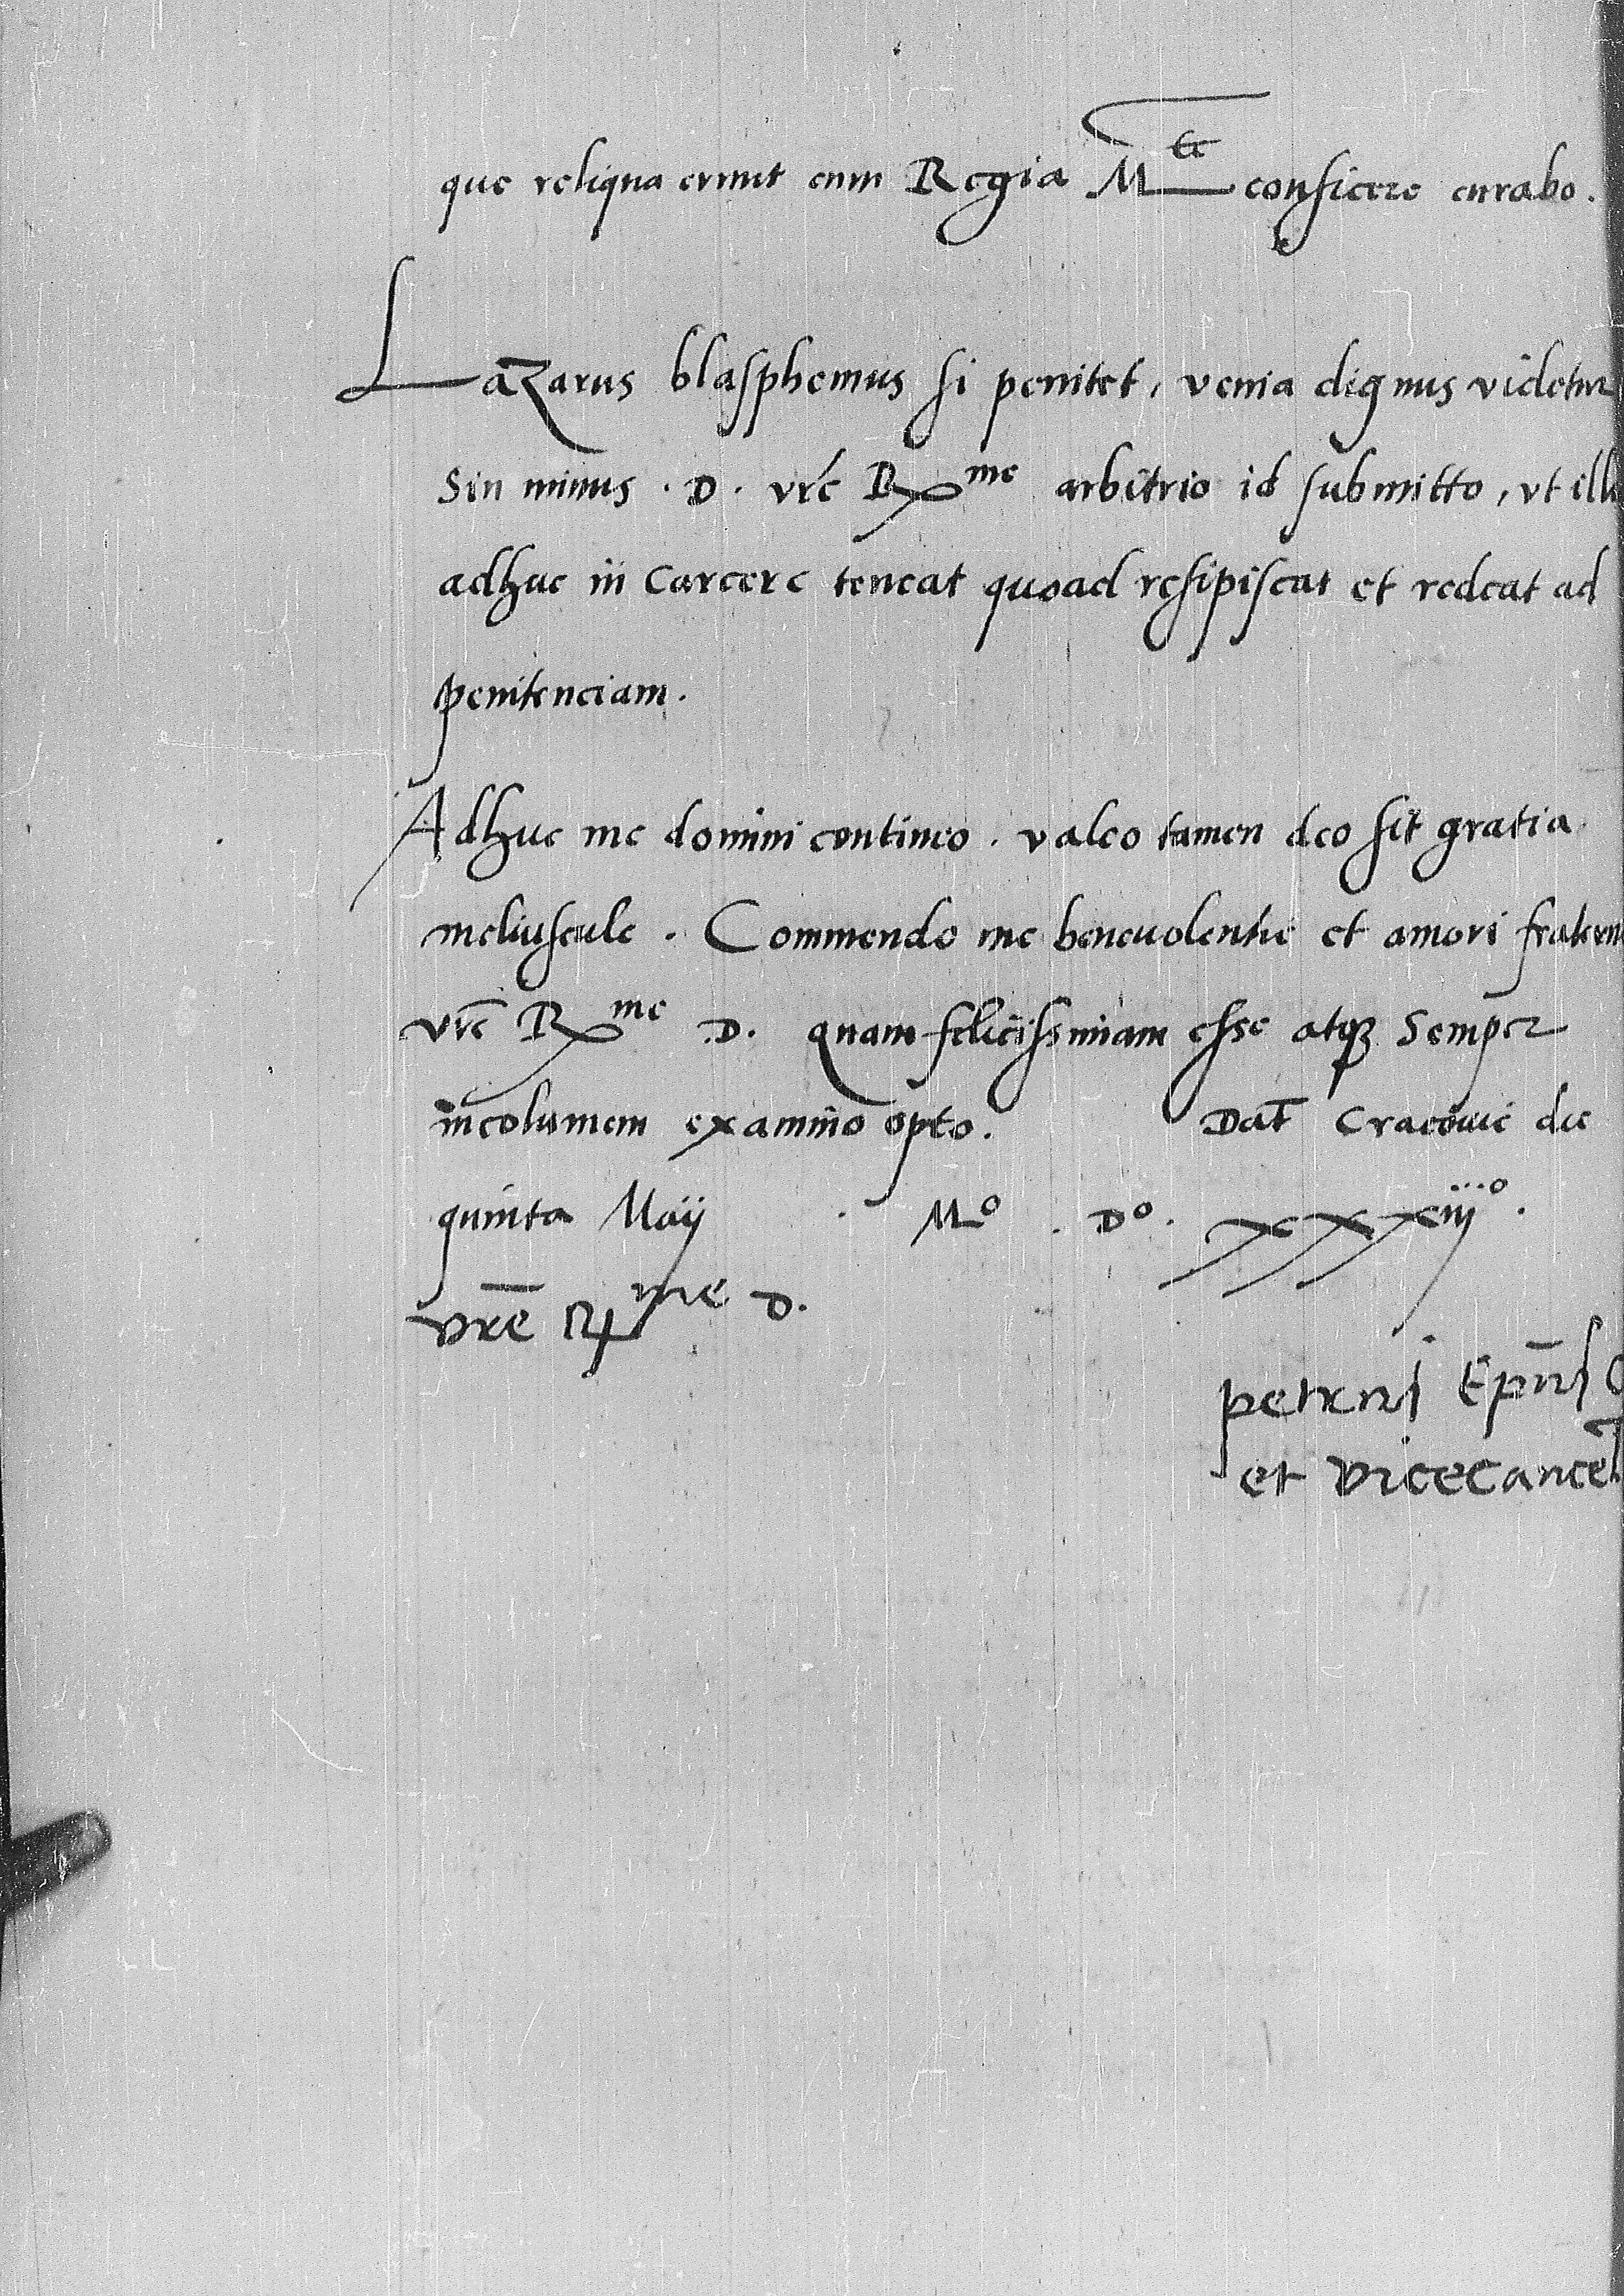 que reliqua erunt cum Regia M^te conficere curabo.
Lazarus blasphemus si penitet, venia dignus videtur
Sin minus . D . vrē Rx^me arbitrio id submitto, vt illu
adhuc in carcere teneat quoad resipiscat et redeat ad
penitenciam.
Adhuc me domini contineo . valeo tamen deo sit gratia
meliuscule . Commendo me beneuolentie et amori fratern
vrē Rx^me D. quam felicissimam esse atqꝫ Semper
incolumem ex animo opto. Dat̄ Cracouie die
quinta Maij . M^o . D^o . xxxiiij^o .
vrē Rx^me D.
petrus Ep̄us C
et vicecancel